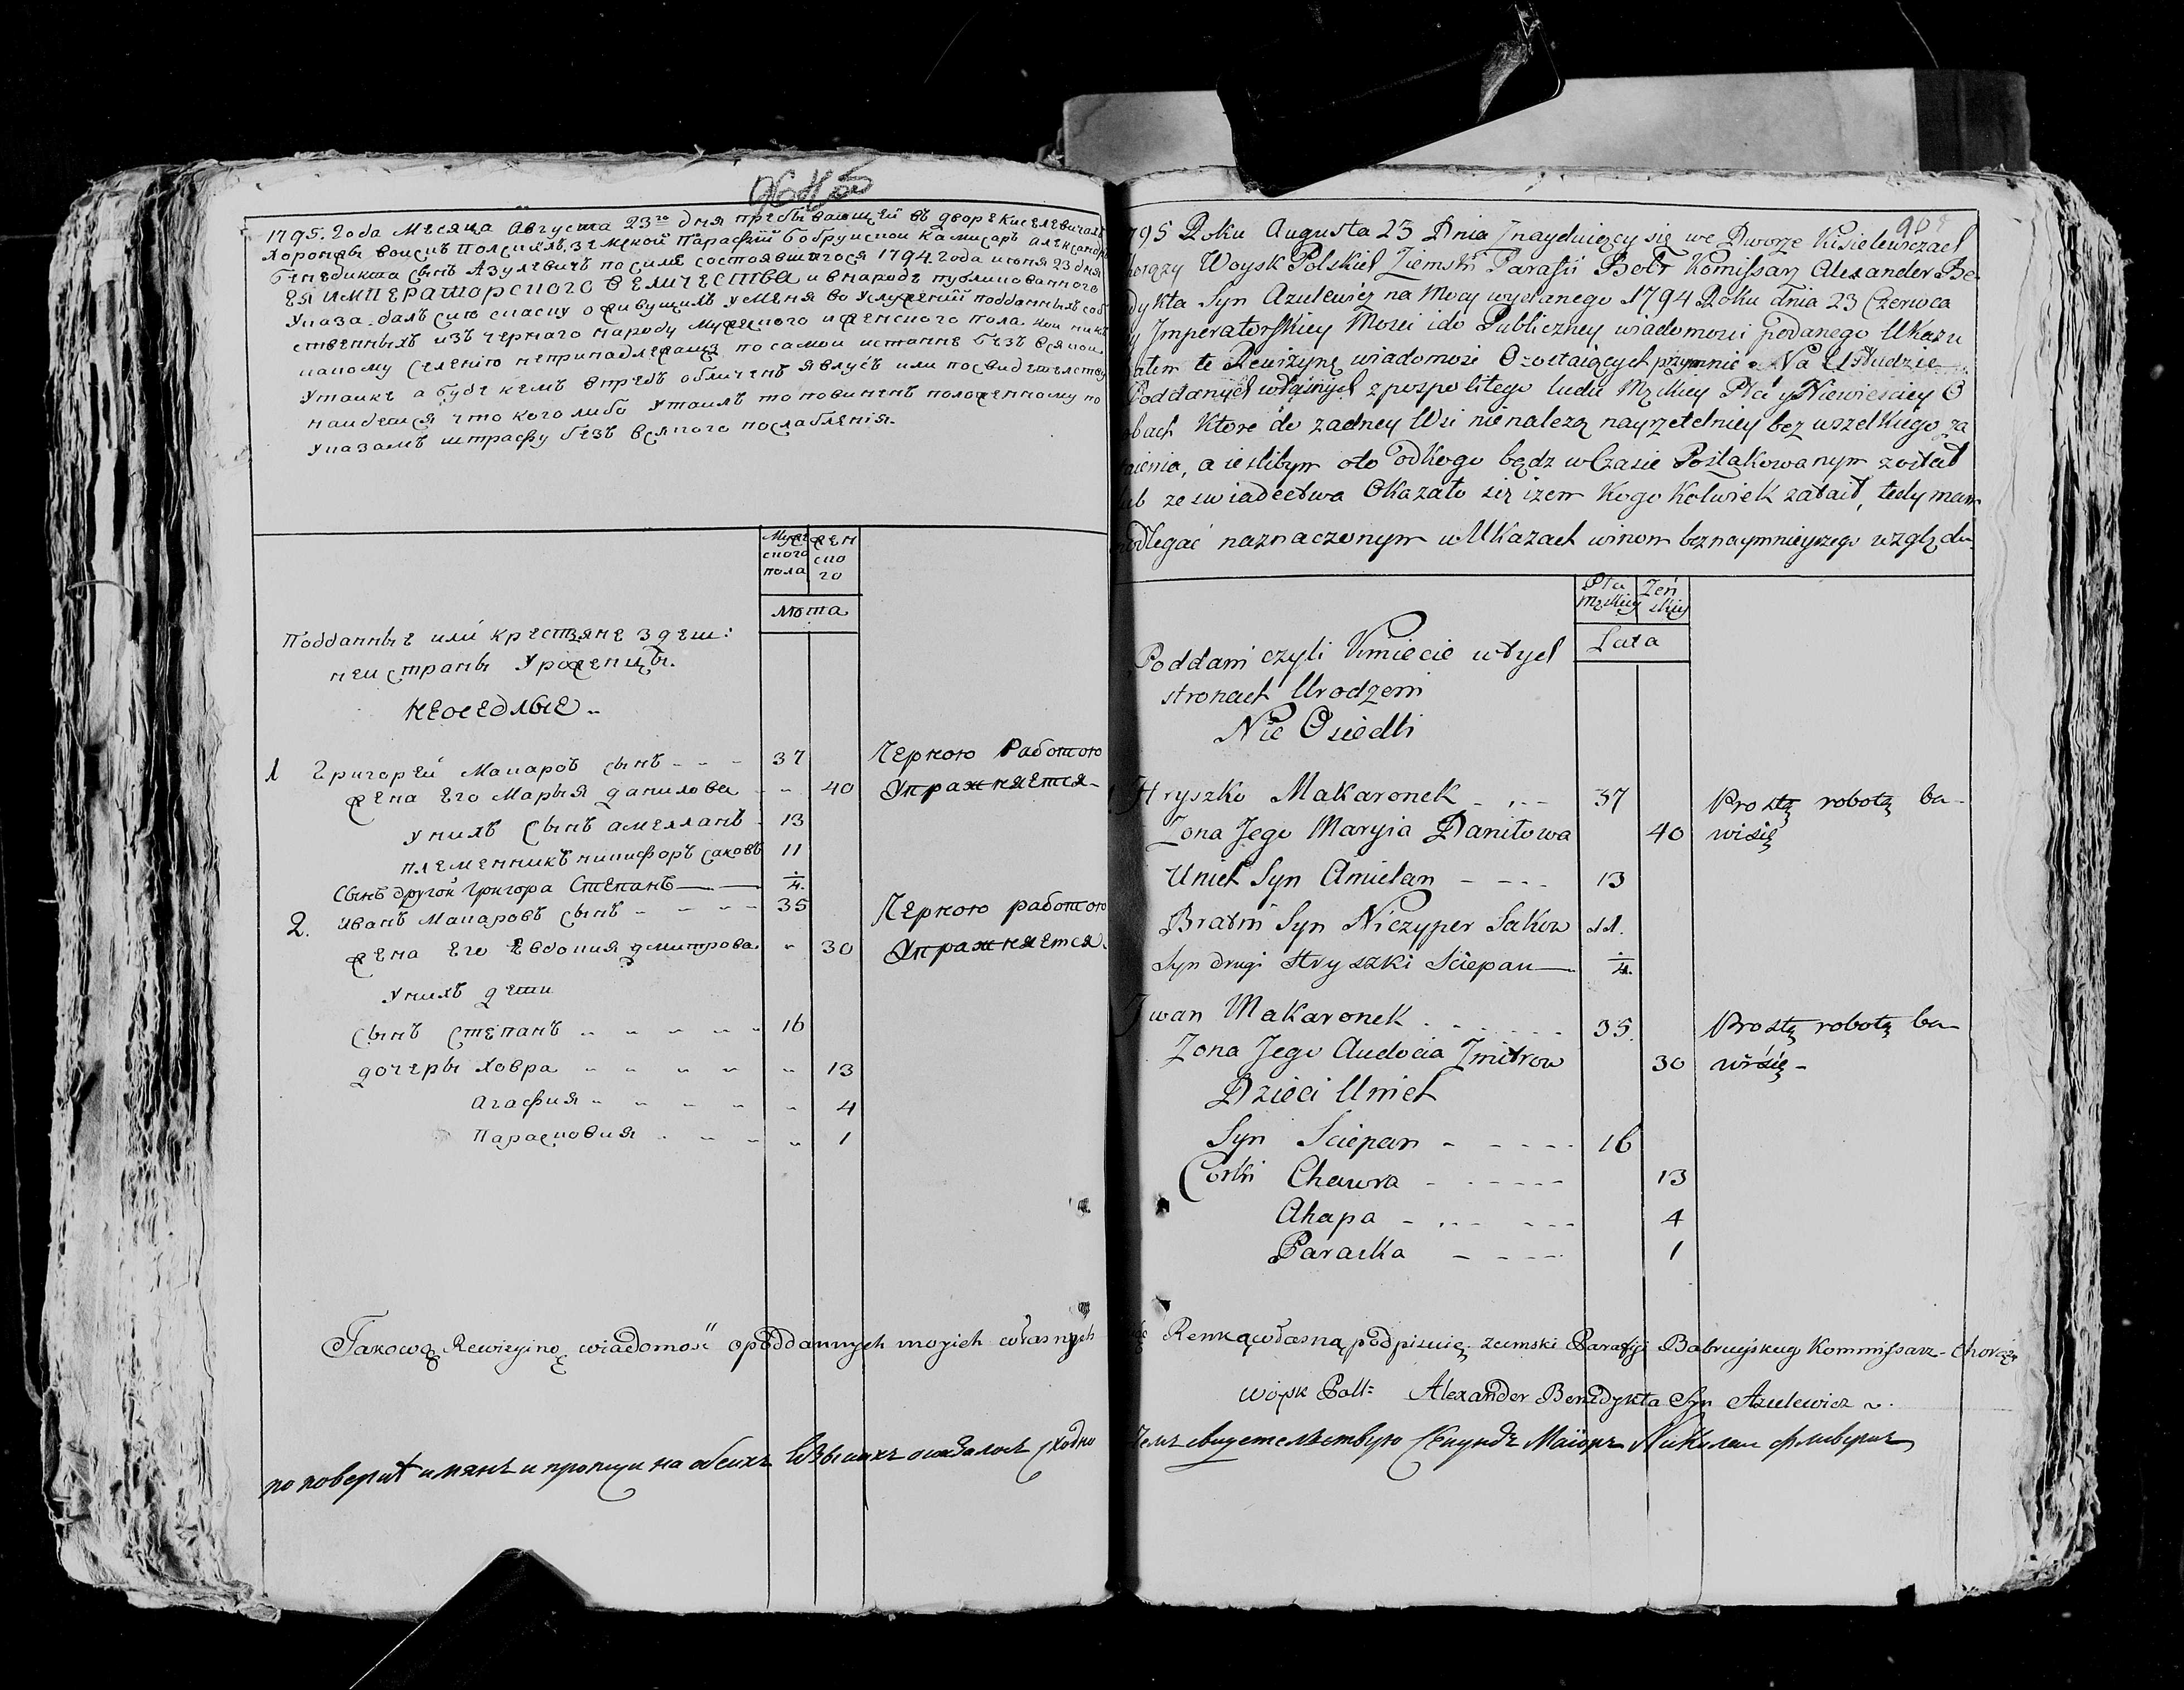 1795. Года Месяца Августа 23го дня пребывающий въ дворе Киселевичахъ
Хоронжы воискъ Полскихъ, земской Парафіи Бобруискои Камисаръ Александръ
Бенедикта сынъ Азулевичъ по силе состоявшегося 1794 года июня 23 дня
ЕЯ ИМПЕРАТОРСКОГО ВЕЛИЧЕСТВА и в народе публикованного
Указа далъ сию скаску о живущихъ у меня во услужении подданныхъ соб
ственныхъ изъ чернаго народу мужеского и женского пола кои ник
какому селению непринадлежаща по самои истинне безъ всякои
утаики а буде кемъ впредь обличенъ явлусь или по свидетелству
наидется что кого либо утаилъ то повиненъ положенному по
указамъ штрафу безъ всякого послабленія.
Мужеского пола
женского
лѣта
Подданные или крестяне здеш:
неи страны Уроженцы.
неоседлые
1 Григорей Макаровъ сынъ 37 Черною Работою
жена его Марья данилова 40 Упражняется
У нихъ сынъ амеллянъ 13
племенникъ никифоръ саковъ 11
Сынъ другой Григора Степанъ 1/4.
2. Иванъ Макаровъ сынъ 35 Черною работою
жена его Евдокия дмитрова 30 Упражняется
У нихъ дети
сынъ степанъ 16
дочеры Ховра 13
Агафия 4
Парасковия 1
Takową Rewizyiną wiadomość o poddannych moyich własnych
по поверке имянъ и прописи на обеихъ языкахъ оказалось сходно
795 Roku Augusta 23 Dnia Znayduiący się we Dworze Kisielewiczach
horąży Woysk Polskich Ziemski Parafii Bobr Komissarz Alexander Be
dykta Syn Azulewicz na Mocy wydanego 1794 Roku dnia 23 Czerwca
y Imperatorskiey Mości i do Publiczney wiadomości podanego Ukazu
ałem te Rewizyinę wiadomość O zostaiących przymnie Na Usłudze
Poddanych własnych z pospolitego ludu Męzkiey Płci y Niewieściey O
obach Ktore do zadney Wsi nienalezą nayrzetelniey bez wszelkiego za
taienia, a ieslibym oto odkogo bądz wCzasie Poszlakowanym został
ub ze swiadectwa Okazało się izem kogo kolwiek zataił, tedy mam
podlegać naznaczonym w Ukazach winom beznaymnieyszego względu
Płci Męzkiey
Zeńskiey
Lata
Poddani czyli Kmiecie wtych
stronach Urodzeni
Nie Osiedli
Hryszko Makaronek 37 Prostą robotą ba-
Zona Jego Maryia Daniłowa 40 wi się
Unich Syn Amielan 13
Bratni Syn Niczyper Sakow 11.
Syn drugi Hryszki Sciepan 1/4.
Iwan Makaronek 35. Prostą robotą ba-
Zona Jego Audocia Zmitrow 30 wi się
Dzieci Unich
Syn Sciepan 16
Corki Chawra 13
Ahapa 4
Paraska 1
Renką własną podpisuię. Zemski Parafiji Babruyskiey Kommissarz Chorąży
woysk Poll: Alexander Benedykta Syn Azulewicz
чемъ свидетелствую Секундъ Маіоръ